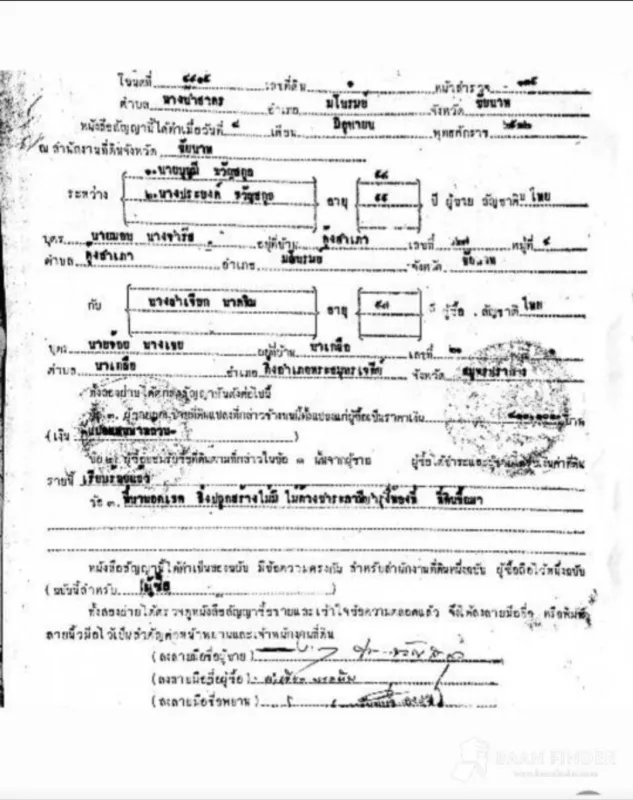 โฉนดที่ ๔๘๑๕ เลขที่ดิน ๑ หน้าสำรวจ ๑๓๕
ตำบล หางน้ำสาคร อำเภอ มโนรมย์ จังหวัด ชัยนาท
หนังสือสัญญานี้ได้ทำเมื่อวันที่ ๘ เดือน มิถุนายน พุทธศักราช
ณ สำนักงานที่ดินจังหวัด ชัยนาท
๑.นายบุญมี ขวัญสกุล ๕๘
ระหว่าง ๒.นางประยงค์ ขวัญสกุล อายุ ๕๕ ปี ผู้ขาย สัญชาติ ไทย
บุตร นายมอญ นางจำรัส อยู่ที่บ้าน คุ้งสำเภา เลขที่ หมู่ที่ ๔
ตำบล คุ้งสำเภา อำเภอ มโนรมย์ จังหวัด ชัยนาท
กับ นางสำเรียก นาคทิม อายุ ๕๗ ปี ผู้ซื้อ สัญชาติ ไทย
บุตร นายจ้อย นางเชย อยู่ที่บ้าน นาเกลือ เลขที่ ๒๑
ตำบล นาเกลือ กิ่งอำเภอพระสมุทรเจดีย์ จังหวัด สมุทรปราการ
ทั้งสองฝ่ายได้ตกลงสัญญากันดังต่อไปนี้
ข้อ ๑. ผู้ขายยอมขายที่ดินแปลงที่กล่าวข้างบนนี้ทั้งแปลงแก่ผู้ซื้อเป็นราคาเงิน บาท
(เงิน แปดแสนบาทถ้วน )
ข้อ ๒. ผู้ซื้อยอมรับซื้อที่ดินตามที่กล่าวในข้อ ๑ นั้นจากผู้ขาย ผู้ซื้อได้ชำระและผู้ขายได้รับเงินค่าที่ดิน
รายนี้ เรียบร้อยแล้ว
ข้อ ๓. ที่นานอกเขต สิ่งปลูกสร้างไม่มี ไม่ค้างชำระภาษีบำรุงท้องที่ ที่ดินซื้อมา
หนังสือสัญญานี้ได้ทำเป็นสองฉบับ มีข้อความตรงกัน สำหรับสำนักงานที่ดินหนึ่งฉบับ ผู้ซื้อถือไว้หนึ่งฉบับ
(ฉบับนี้สำหรับ ผู้ซื้อ )
ทั้งสองฝ่ายได้ตรวจดูหนังสือสัญญาซื้อขายและเข้าใจข้อความตลอดแล้ว จึงได้ลงลายมือชื่อ หรือพิมพ์
ลายนิ้วมือไว้เป็นสำคัญต่อหน้าพยานและเจ้าพนักงานที่ดิน
(ลงลายมือชื่อผู้ขาย)
(ลงลายมือชื่อผู้ซื้อ)
(ลงลายมือชื่อพยาน)
BAAN FINDER